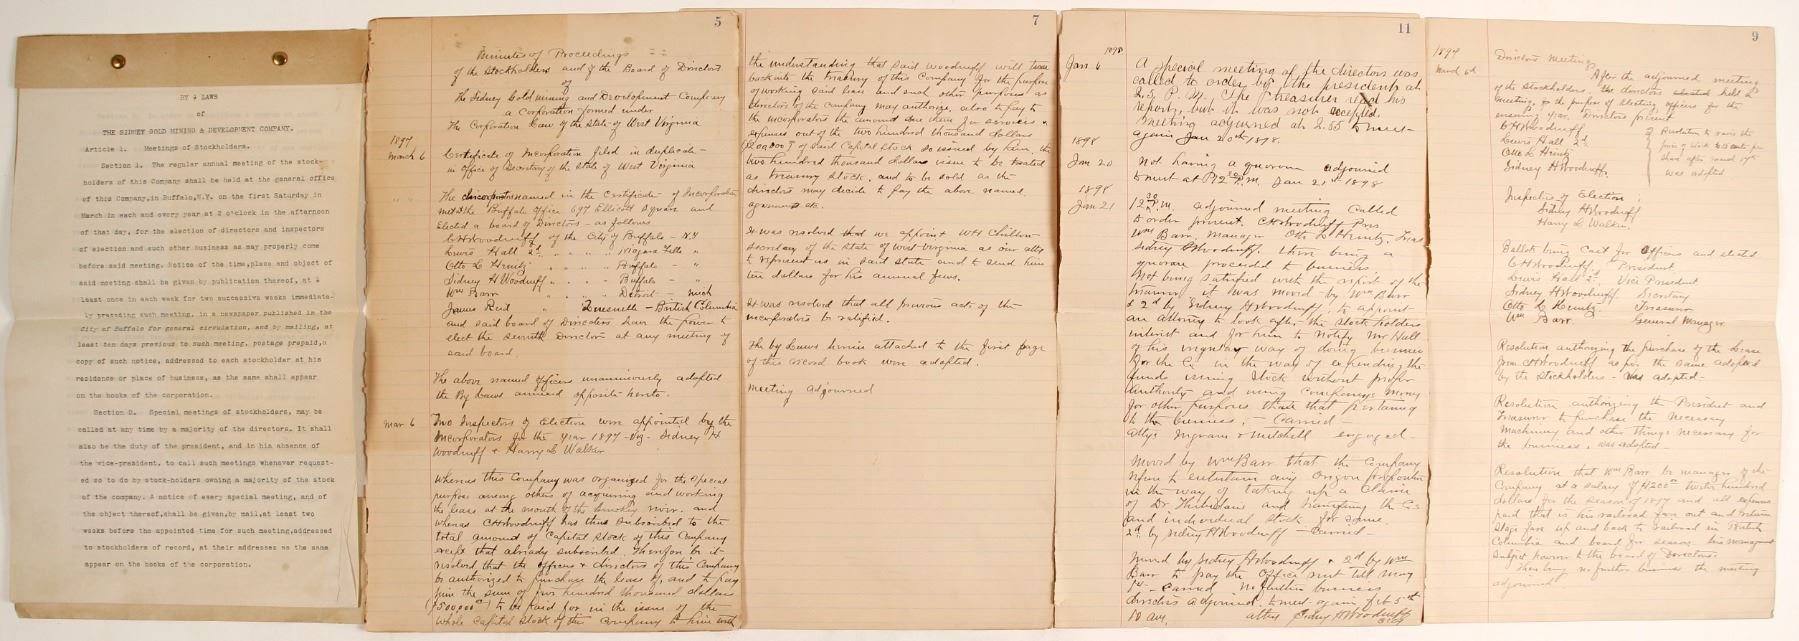 BY & LAWS
of
THE SIDNEY GOLD MINING & DEVELOPMENT COMPANY.
Article 1. Meetings of Stockholders.
Section 1. The regular annual meeting of the stock-
holders of this Company shall be held at the general office
of this Company, in Buffalo, N.Y. on the first Saturday in
March in each and every year at 2 o'clock in the afternoon
of that day, for the election of directors and inspectors
of election and such other business as may properly come
before said meeting. Notice of the time, place and object of
said meeting shall be given by publication thereof, at
least once in each week for two successive weeks immediate-
ly preceding such meeting, in a newspaper published in the
city of Buffalo for general circulation, and by mailing, at
least ten days previous to such meeting, postage prepaid, a
copy of such notice, addressed to each stockholder at his
residence or place of business, as the same shall appear
on the books of the corporation.
Section 2. Special meetings of stockholders, may be
called at any time by a majority of the directors. It shall
also be the duty of the president, and in his absence of
the vice-president, to call such meetings whenever request-
ed so to do by stock-holders owning a majority of the stock
of the company. A notice of every special meeting, and of
the object thereof, shall be given, by mail, at least two
weeks before the appointed time for such meeting, addressed
to stockholders of record, at their addresses as the same
appear on the books of the corporation.
5
Minutes of Proceedings
of the Stockholders and of the Board of Directors
of
The Sidney Gold mining and Development Company
a Corporation formed under
The Corporation Law of the State of West Virginia
1897
March 6 Certificate of Incorporation filed in duplicate
in Office of Secretary of the State of West Virginia
The incorporators named in the Certificate of Incorporation
met at the Buffalo Office 697 Ellicott Square and
Elected a board of Directors as follows
C H Woodruff of the City of Buffalo N.Y
Lewis Hall 2d " " " " Niagara Falls "
Otto L Heintz " " " Buffalo "
Sidney H Woodruff " " " Buffalo "
Wm Barr " " " Detroit Mich
James Reid " Quesnelle British Columbia
and said board of Directors have the power to
elect the seventh Director at any meeting of
said board.
The above named Officers unanimously adopted
the By Laws annexed opposite hereto.
Mar 6 Two Inspectors of Election were appointed by the
Incorporators for the year 1897 viz Sidney H
Woodruff & Harry L Walker
Whereas this Company was organized for the special
purpose among others of acquiring and working
the lease at the mouth of the river and
whereas C H Woodruff has thus subscribed to the
total amount of Capital Stock of this Company
except that already subscribed. Therefore be it
resolved that the officers & directors of this Company
be authorized to purchase the lease of, and to pay
him the sum of five hundred thousand dollars
(500000) to be paid for in the issue of the
whole Capital Stock of the Company to him with
7
the understanding that said Woodruff will turn
back into the treasury of this Company for the purpose
of working said lease and such other purposes as
directors of the Company may authorize, also to pay to
the incorporators the amount due them for services &
expenses out of the two hundred thousand dollars
200,000 of said Capital Stock so issued by him, the
two hundred thousand dollars issue to be treated
as treasury stock, and to be sold as the
directors may decide to pay the above named
agreements etc.
It was resolved that we appoint W H Chilton
Secretary of the State of West Virginia as our atty
to represent us in said State and to send him
ten dollars for his annual fees.
It was resolved that all previous acts of the
incorporators be ratified.
The by Laws herein attached to the first page
of this record book were adopted.
Meeting adjourned
11
1898
Jan 6 A special meeting of the directors was
called to order by the president at
2.30 P.M. The treasurer read his
report, but it was not accepted.
Meeting adjourned at 2.55 to meet
again Jan 20th 1898.
1898
Jan 20 Not having a quorum adjourned
to meet at 12 P.M. Jan 21st 1898
1898
Jan 21 12 P.M. adjourned meeting called
to order present C H Woodruff Pres
Wm Barr, Manager Otto L Heintz, Treas
Sidney H Woodruff. there being a
quorum proceeded to business.
Not being satisfied with the report of the
treasurer it was moved by Wm Barr
& 2d by Sidney H Woodruff, to appoint
an attorney to look after the stock holders
interest and for him to notify Mr Hall
of his irregular way of doing business
for the Co. in the way of expending the
funds issuing stock without proper
authority and using Companys money
for other purposes than that pertaining
to the business. Carried
Attys Ingram & Mitchell engaged
Moved by Wm Barr that the Company
refuse to entertain any
in the way of taking up a claim
of Dr and transferring the Co's
and individual stock for same.
2d by Sidney H Woodruff Carried
Moved by Sidney H Woodruff & 2d by Wm
Barr to pay the Office rent till May
1st Carried. No further business
directors adjourned to meet again Feb 5th
10 am. attest Sidney H Woodruff
9
1897
March 6th Directors Meeting
After the adjourned meeting
of the stockholders the directors held a
meeting, for the purpose of electing officers for the
ensuing year. Directors present
C H Woodruff
Lewis Hall 2d
Otto L Heintz
Sidney H Woodruff
Resolution to raise the
price of stock to cents per
share after
was adopted
Inspectors of Election;
Sidney H Woodruff
Harry L Walker.
Ballots being cast for Officers and elected
C H Woodruff President
Lewis Hall 2d Vice President
Sidney H Woodruff. Secretary
Otto L Heintz. Treasurer
Wm Barr. General Manager
Resolution authorizing the purchase of the lease
from C H Woodruff as per the same adopted
by the Stockholders was adopted
Resolution authorizing the President and
Treasurer to purchase the necessary
Machinery and other things necessary for
the business, was adopted
Resolution that Wm Barr be manager of the
Company at a salary of $1200 twelve hundred
dollars for the season of 1897 and all expenses
paid that is his railroad fare out and return
stage fare up and back to railroad in British
Columbia and board for season
subject however to the board of Directors.
There being no further business the meeting
adjourned